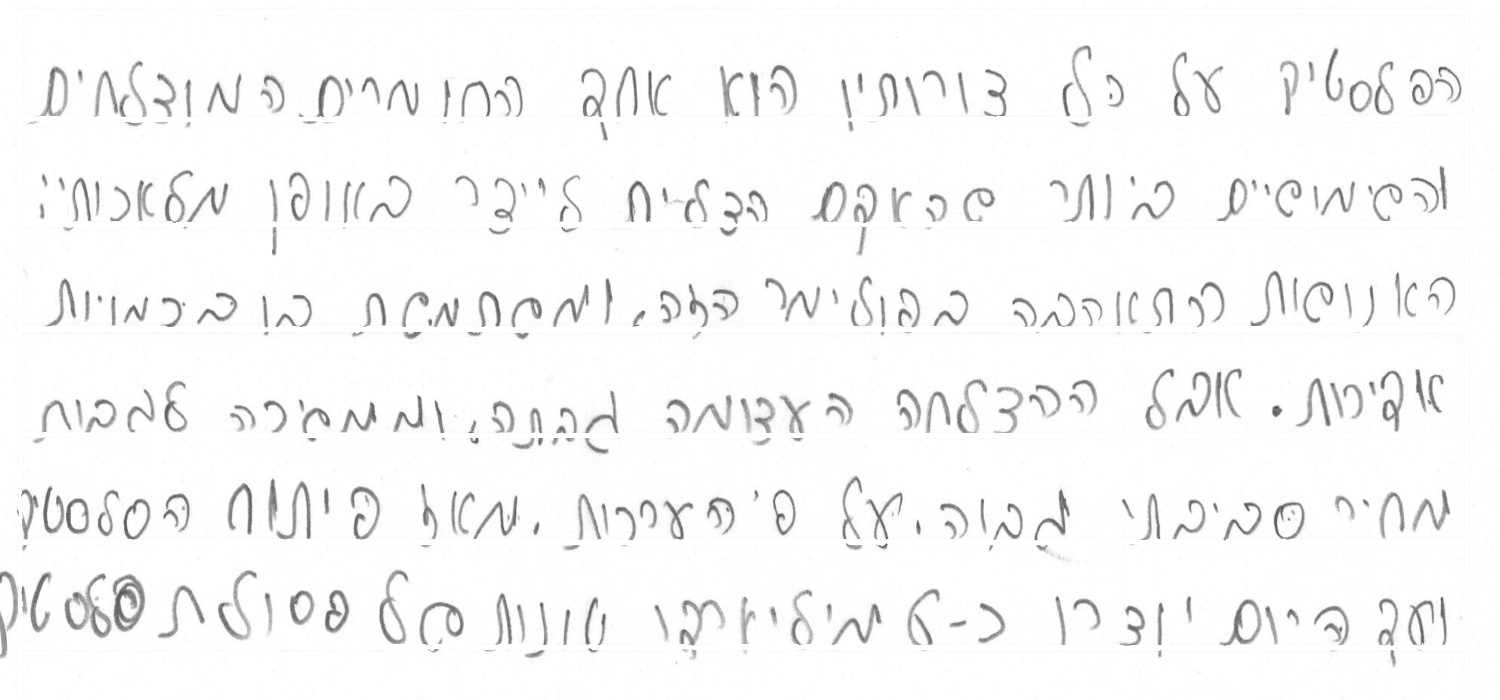 הפלסטיק על כל צורותיו הוא אחד החומרים המוצלחים
והשימושיים ביותר שהאדם הצליח לייצר באופן מלאכותי:
האנושות התאהבה בפולימר הזה, ומשתמשת בו בכמויות
אדירות. אבל ההצלחה העצומה גבתה, וממשיכה לגבות
מחיר סביבתי גבוה. על פי הערכות, מאז פיתוח הפלסטיק
ועד היום יוצרו כ-7 מיליארדי טונות של פסולת פלסטיק